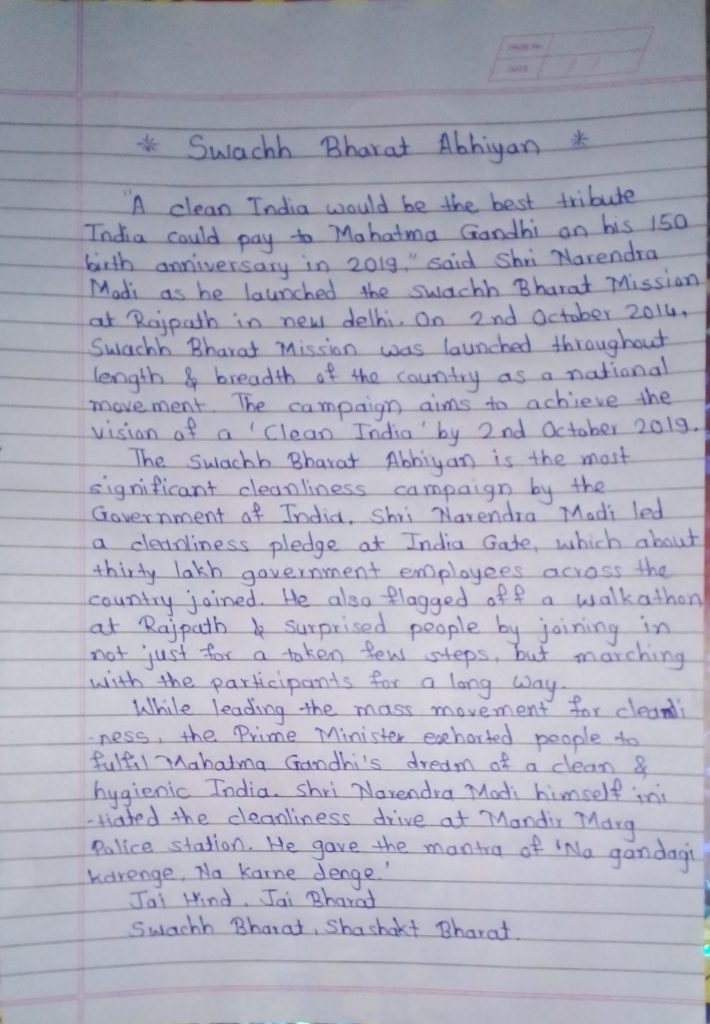 PAGE No.
DATE
* Swachh Bharat Abhiyan *
"A clean India would be the best tribute
India could pay to Mahatma Gandhi on his 150
birth anniversary in 2019," said Shri Narendra
Modi as he launched the Swachh Bharat Mission
at Rajpath in new delhi. On 2nd October 2014,
Swachh Bharat Mission was launched throughout
length & breadth of the country as a national
movement. The campaign aims to achieve the
vision of a 'Clean India' by 2nd October 2019.
The Swachh Bharat Abhiyan is the most
significant cleanliness campaign by the
Government of India. Shri Narendra Modi led
a cleanliness pledge at India Gate, which about
thirty lakh government employees across the
country joined. He also flagged off a walkathon
at Rajpath & surprised people by joining in
not just for a token few steps, but marching
with the participants for a long way.
While leading the mass movement for cleanli
-ness, the Prime Minister exhorted people to
fulfil Mahatma Gandhi's dream of a clean &
hygienic India. Shri Narendra Modi himself ini
-tiated the cleanliness drive at Mandir Marg
Police station. He gave the mantra of 'Na gandagi
karenge, Na karne denge.'
Jai Hind, Jai Bharat
Swachh Bharat, Shashakt Bharat.